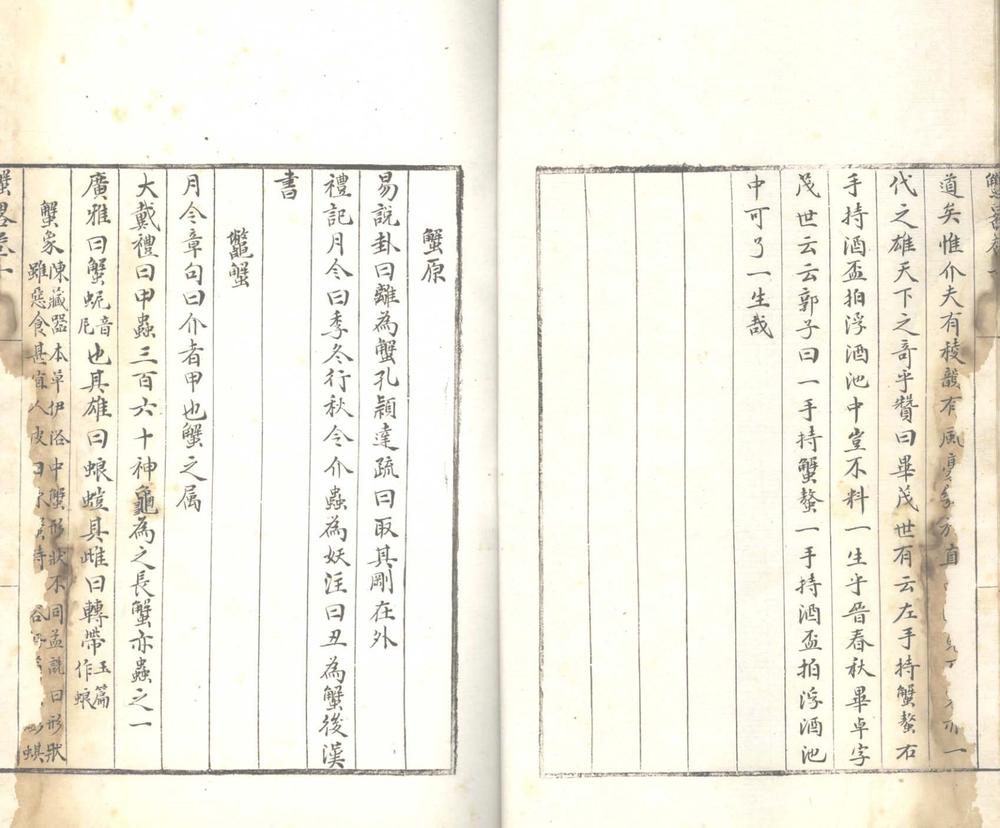 道矣惟介夫有稜毅有風
代之雄天下之奇乎贊曰畢茂世有云左手持蟹螯右
手持酒盃拍浮酒池中豈不料一生乎晉春秋畢卓字
茂世云云郭子曰一手持蟹螯一手持酒盃拍浮酒池
中可了一生哉
蟹原
易說卦曰離為蟹孔穎達疏曰取其剛在外
禮記月令曰季冬行秋令介蟲為妖注曰丑為蟹後漢
書
蟹
月令章句曰介者甲也蟹之属
大戴禮曰甲蟲三百六十神龜為之長蟹亦蟲之一
廣雅曰蟹蚭音尼也其雄曰蜋螘其雌曰轉帶玉篇作蜋
蟹象陳藏器本草伊洛中蟹形狀不同孟詵曰形狀
雖惡食甚宜人皮日休
蟹畧卷一